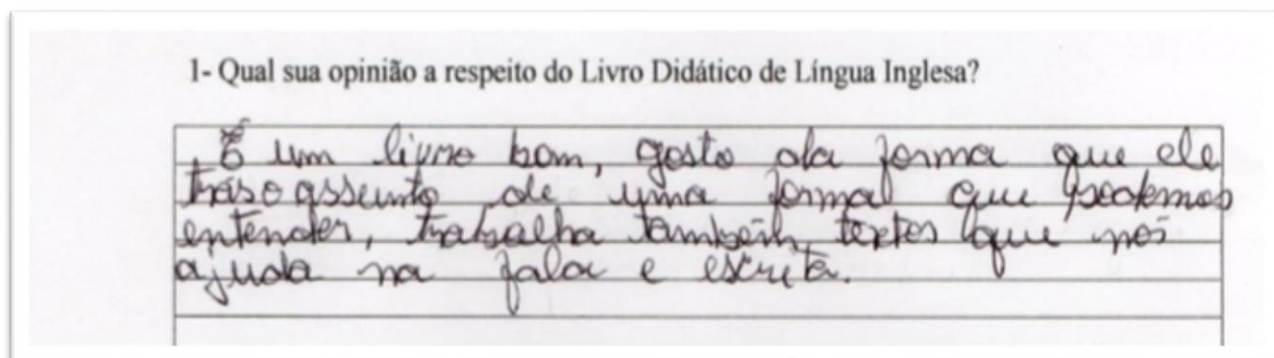 1- Qual sua opinião a respeito do Livro Didático de Língua Inglesa?
É um livro bom, gosto da forma que ele
tráso assunto de uma forma que podemos
entender, trabalha também textos que nós
ajuda na fala e escrita.